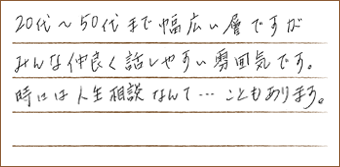 20代～50代まで幅広い層ですが
みんな仲良く話しやすい雰囲気です。
時には人生相談なんて…こともあります。